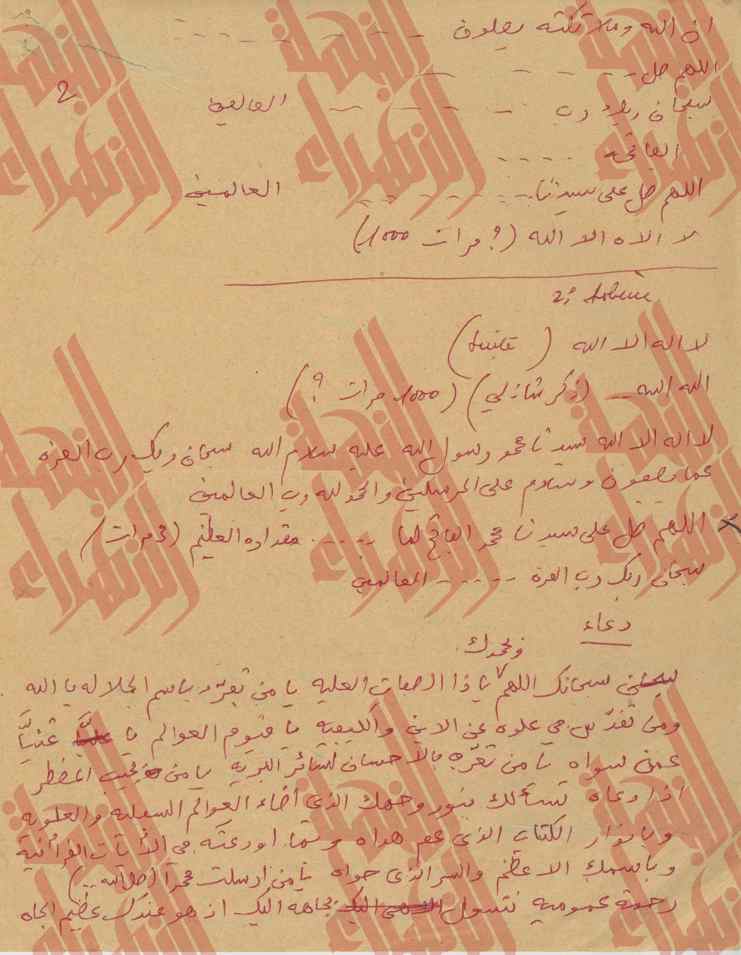 ان الله وملائكته يصلون - - - - - - -
اللهم صل - - - - -
2
سبحان ربك رب - - - - - العالمين
الفاتحه - - - -
اللهم صل على سيدنا - - - - - - العالمين
لا الاه الا الله (؟ مرات 1000)
2;
لا اله الا الله (
الله الله - (ذكر شاذلي) (1000 مرات ؟)
لا اله الا الله سيدنا محمد رسول الله عليه سلام الله سبحان ربك رب العزه
عما يصفون وسلام على المرسلين والحمد لله رب العالمين
x اللهم صل على سيدنا محمد الفاتح لما - - - - - مقداره العظيم (3 مرات)
سبحان ربك رب العزه - - - - - العالمين
دعاء
وبحمدك
سبحانك اللهم يا ذا الصفات العليه يا من تفرد باسم الجلاله يا الله
ومن تقدس في علوه عن الاين والكيفيه يا قيوم العوالم يا غنياً
عمن سواه يا من تعرف بالاحسان لسائر البريه يا من يجيب المضطر
اذا دعاه نسألك بنور وجهك الذي أضاء العوالم السفليه والعلويه
وبانوار الكتاب الذي عم هداه وبما اودعته في الأيات القرأنية
وباسمك الاعظم والسر الذي حواه يا من ارسلت محمداً (صلالله..)
رحمة عموميه نتوسل اليك بجاهه اليك اذ هو عندك عظيم الجاه
النهضة
الزهراء